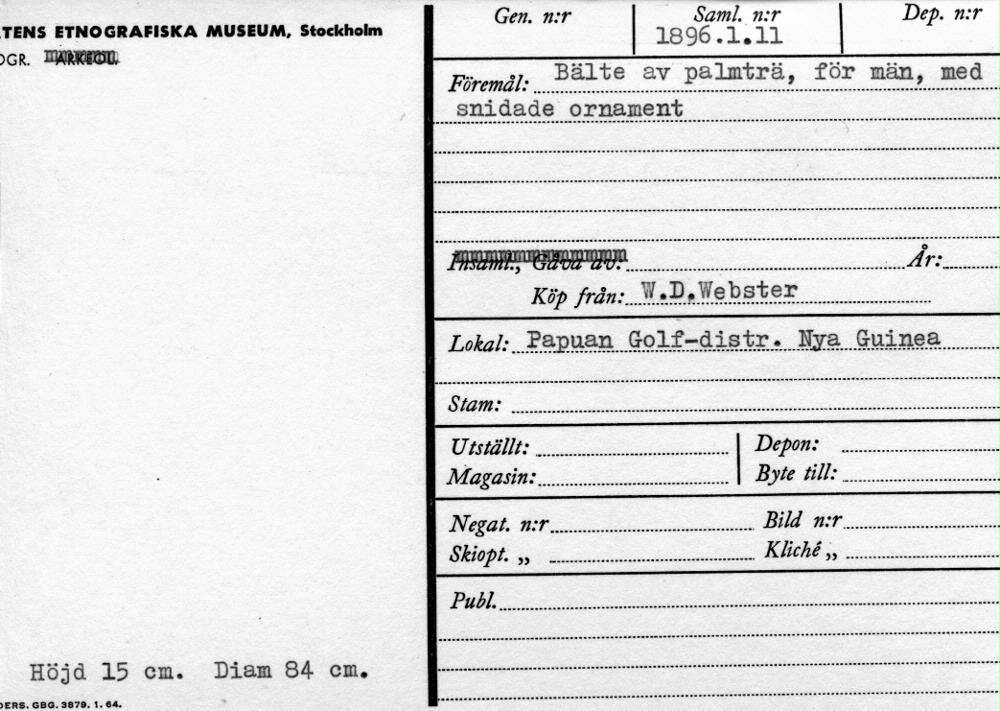 TENS ETNOGRAFISKA MUSEUM, Stockholm
OGR. ARKEOL.
Gen. n:r
Saml. n:r
1896.1.11
Dep. n:r
Föremål: Bälte av palmträ, för män, med
snidade ornament
Insaml., Gåva av: År:
Köp från: W.D.Webster
Lokal: Papuan Golf-distr. Nya Guinea
Stam:
Utställt: Depon:
Magasin: Byte till:
Negat. n:r Bild n:r
Skiopt. „ Kliché „
Publ.
Höjd 15 cm. Diam 84 cm.
DERS. GBG. 3879. 1. 64.